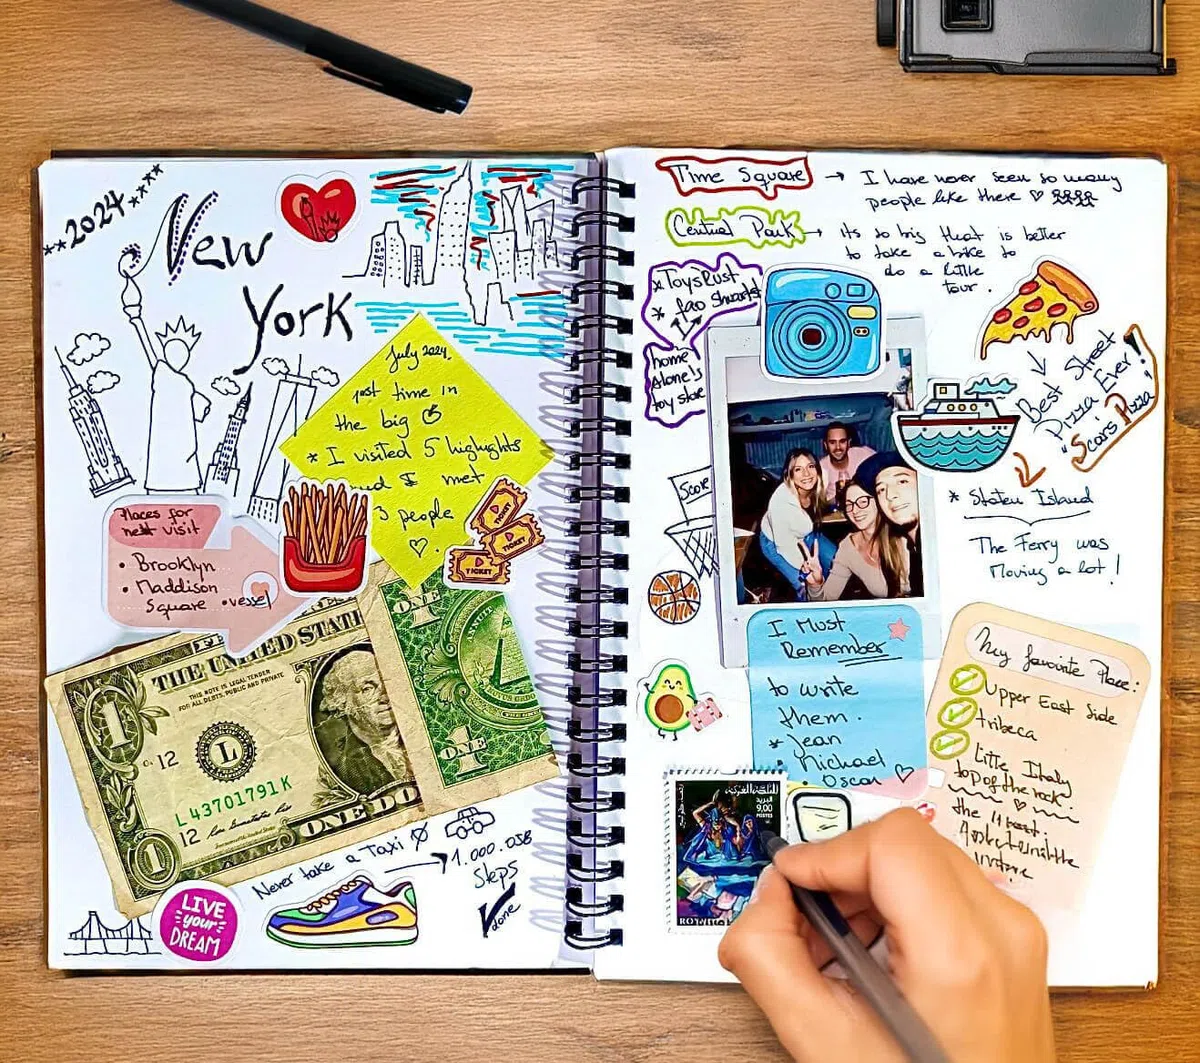 **2024****
New
York
July 2024.
1st time in
the big
* I visited 5 highlights
and I met
3 people
Places for
next visit
• Brooklyn
• Maddison
Square • vessel
TICKET
TICKET
TICKET
THE UNITED STATES
THIS NOTE IS LEGAL TENDER
FOR ALL DEBTS, PUBLIC AND PRIVATE
1
L
12
L 43701791 K
12
ONE DO
1
ONE
ONE
Never take a Taxi
1.000.038
Steps
done
LIVE
your
DREAM
Time Square → I have never seen so many
people like there
Central Park → its so big that is better
to take a bike to
do a little
tour.
* Toys'Rust
* fao Shwartz
home
Alone's
toy store
Best Street
Pizza Ever!
"Scars Pizza"
Score
* Staten Island
The Ferry was
Moving a lot!
I Must
Remember
to write
them.
* Jean
• Michael
• Oscar
My favourite Place:
Upper East Side
tribeca
Little Italy
top of the rock
the
المملكة المغربية
البريد
9,00
POSTES